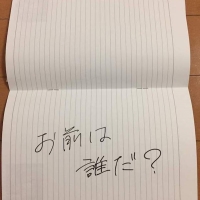 お前は
誰だ？